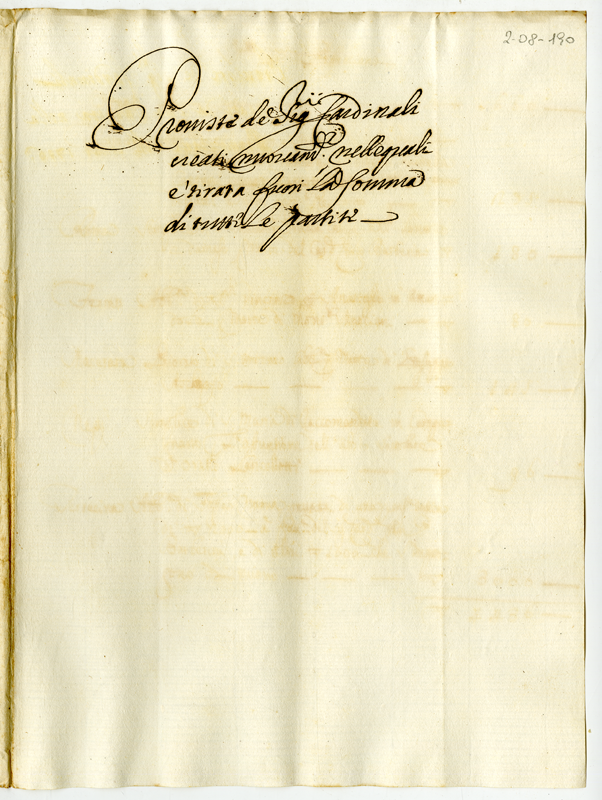 2-08-190
Proviste de Sig.ri Cardinali
creati nuovam.te nelle quali
è tirata fuori la somma
di tutte le partite